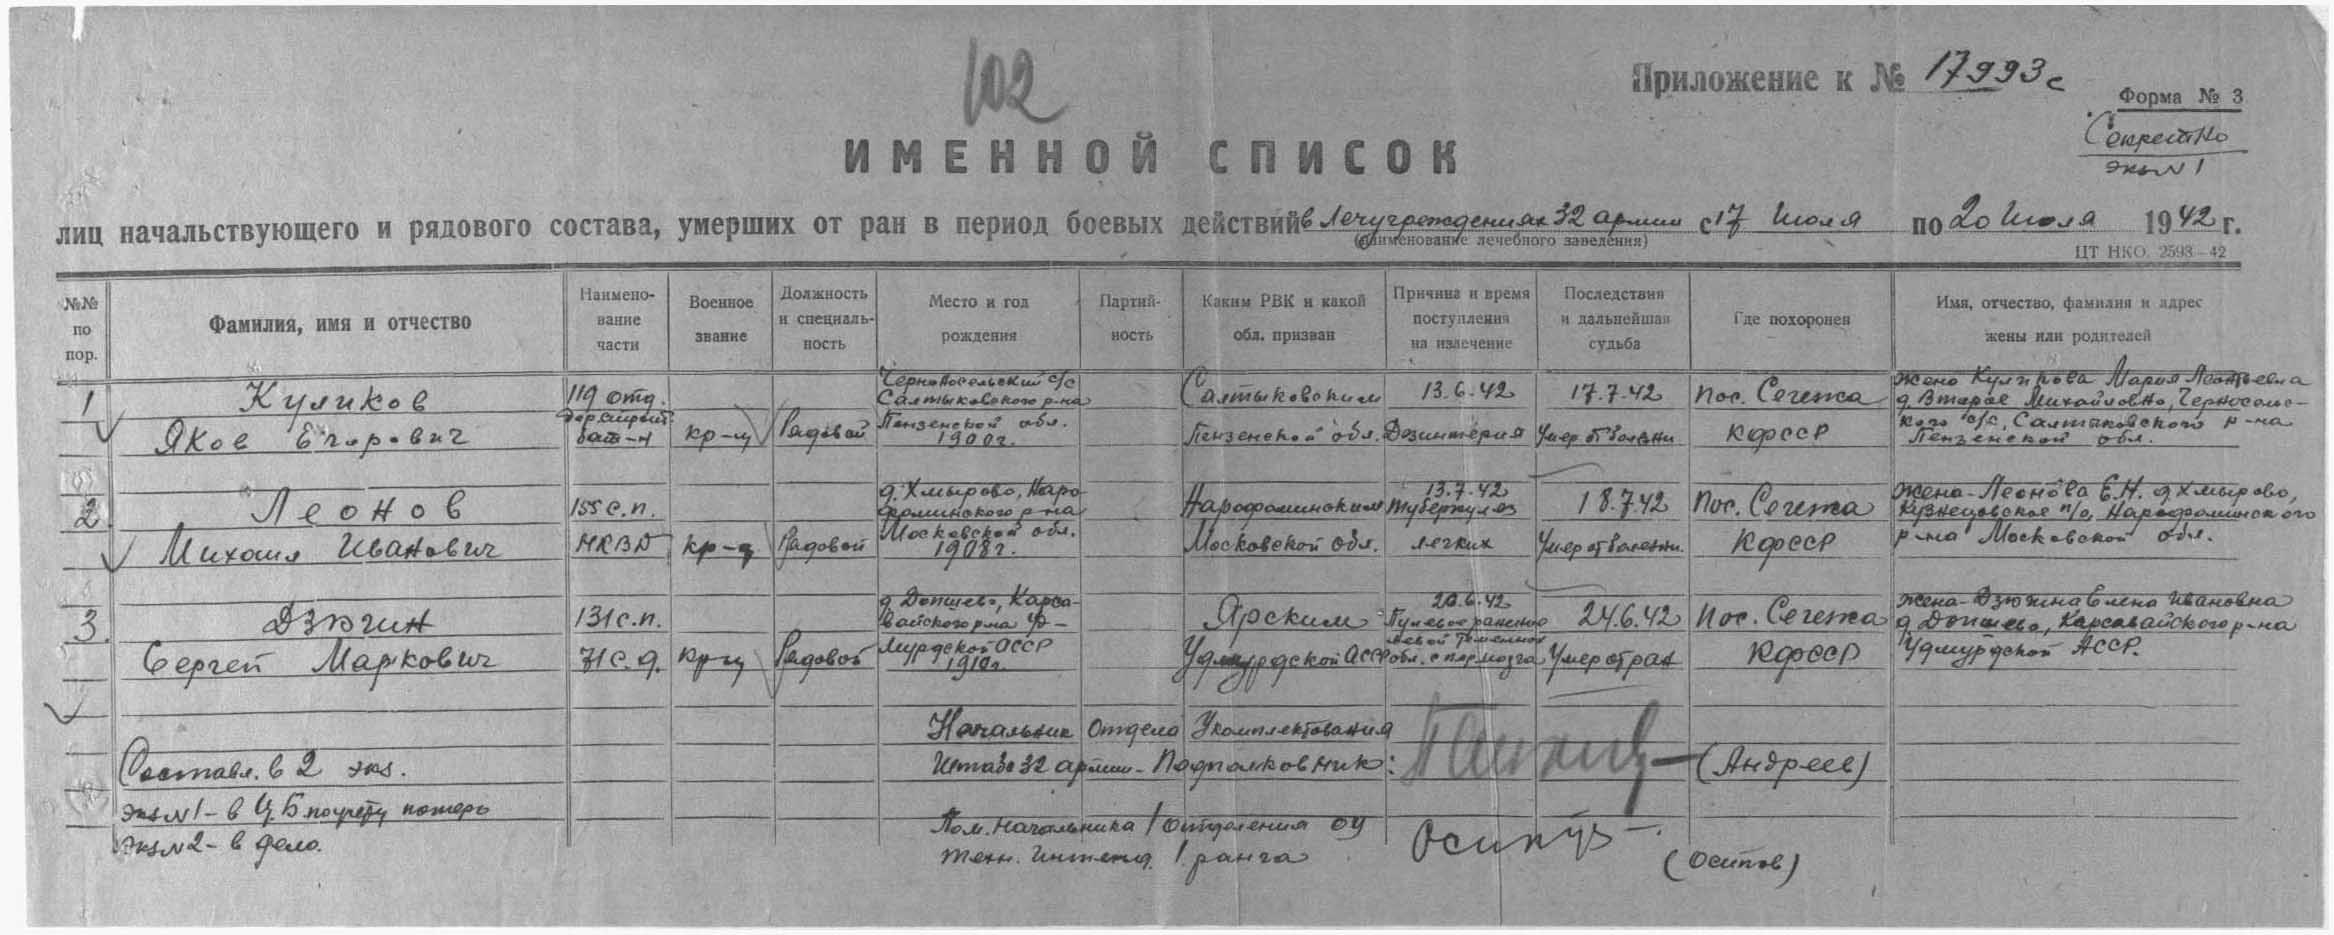 102
Приложение к № 17993с
Форма № 3
Секретно
экз N 1
ИМЕННОЙ СПИСОК
лиц начальствующего и рядового состава, умерших от ран в период боевых действий в Лечучреждениях 32 армии с 17 Июля по 20 Июля 1942 г.
(наименование лечебного заведения)
ЦТ НКО. 2593—42
№№ по пор.
Фамилия, имя и отчество
Наимено-вание части
Военное звание
Должность и специаль-ность
Место и год рождения
Партий-ность
Каким РВК и какой обл. призван
Причина и время поступления на излечение
Последствия и дальнейшая судьба
Где похоронен
Имя, отчество, фамилия и адрес жены или родителей
1
Куликов
Яков Егорович
119 отд.
бат-н
кр-ц
Рядовой
Черносельский с/с
Салтыковского р-на
Пензенской обл.
1900г.
Салтыковским
Пензенской обл.
13.6.42
Дезинтерия
17.7.42
Умер от болезни
пос. Сегежа
КФССР
жена Куликова Мария Леонтьевна
д. Второе Михайловно, Черносельс-
кого с/с, Салтыковского р-на
Пензенской обл.
2
Леонов
Михаил Иванович
155 с.п.
НКВД
кр-ц
Рядовой
д. Хмырово, Наро-
фоминского р-на
Московской обл.
1908г.
Нарофоминским
Московской обл.
13.7.42
туберкулез
легких
18.7.42
Умер от болезни.
пос. Сегежа
КФССР
жена-Леонова Е.Н. д. Хмырово,
Кузнецовское п/о, Нарофоминского
р-на Московской обл.
3.
Дзюгин
Сергей Маркович
131 с.п.
71 с.д.
кр-ц
Рядовой
д. Допшево, Карса-
вайского р-на Уд-
муртской АССР
1910г.
Ярским
Удмурдской АССР
20.6.42
Пулевое ранение
левой теменной
обл. с пор. мозга
24.6.42
Умер от ран
пос. Сегежа
КФССР
жена-Дзюжна Елена Ивановна
д. Допшево, Карсавайского р-на
Удмурдской АССР.
Начальник Отдела Укомплектования
Штаба 32 армии - Подполковник: (Андреев)
Составл. в 2 экз.
экз N 1 - в Ц.Б. по учету потерь
экз N 2 - в дело.
Пом. Начальника 1 отделения ОУ
техн. Интенд. 1 ранга Осипов
(Осипов)